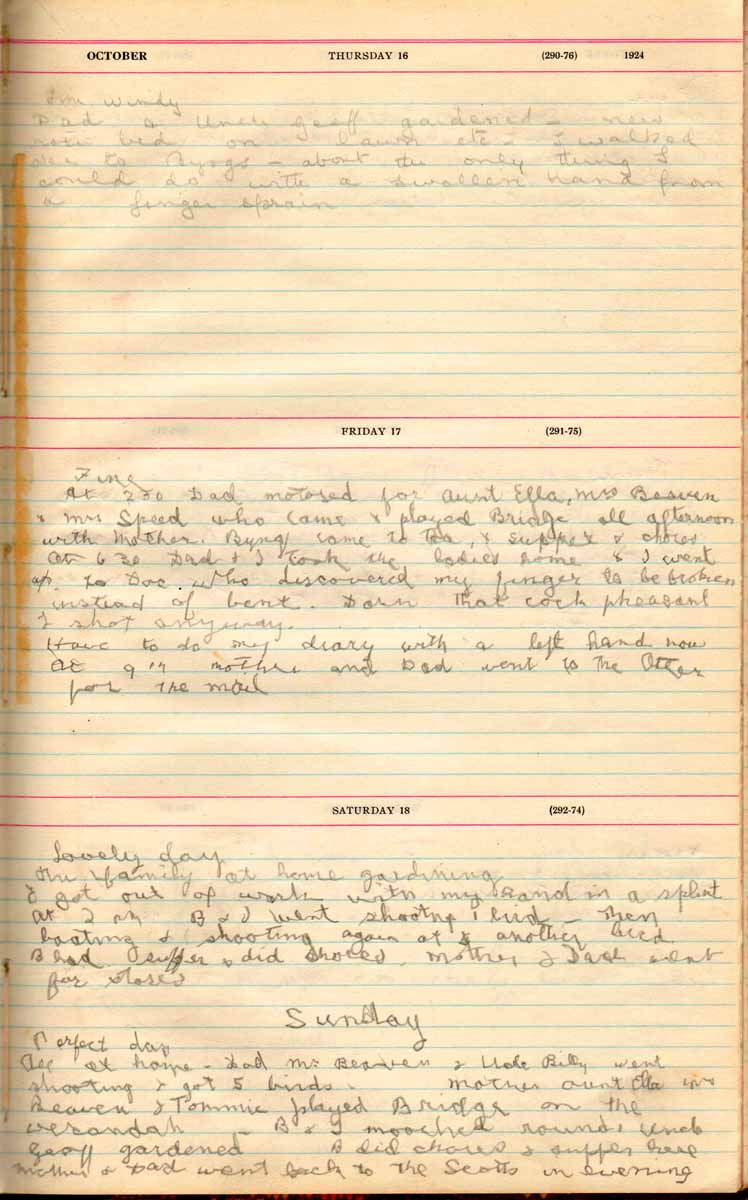 OCTOBER THURSDAY 16 (290-76) 1924
Windy
Dad & Uncle Geoff gardened - new
rose bed on lawn etc - I walked
over to Byngs - about the only thing I
could do with a swollen hand from
a finger sprain
FRIDAY 17 (291-75)
Fine
At 230 Dad motored for Aunt Ella, Mrs Beaven
& Mrs Speed who came & played Bridge all afternoon
with Mother. Byng came to tea, & supper & chores
At 6 30 Dad & I took the ladies home & I went
up to Doc. who discovered my finger to be broken
instead of bent. Darn that cock pheasant
I shot anyway.
Have to do my diary with a left hand now
At 9 Mother and Dad went to the Otter
for the mail
SATURDAY 18 (292-74)
Lovely day
The family at home gardining
I got out of work with my hand in a splint
At 2 pm B & I went shooting 1 bird - then
boating & shooting again at another bird
B had supper & did chores. Mother & Dad went
for stores
Sunday
Perfect day
All at home - Dad Mr Beaven & Uncle Billy went
shooting & got 5 birds. Mother Aunt Ella Mrs
Beaven & Tommie played Bridge on the
verandah - B & I mooched round. Uncle
Geoff gardened B did chores & supper here
Mother & Dad went back to the Scotts in evening